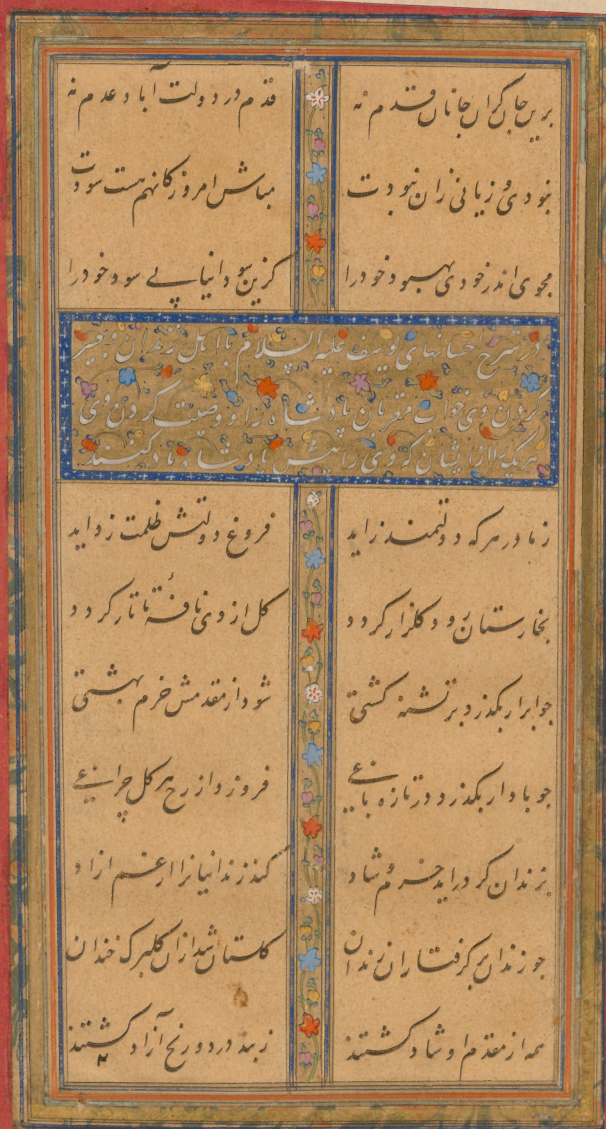 برین جان گران جانان قدم نه قدم در دولت آباد عدم نه
نبودی و زیانی زان نبودت مباش امروز کانهم هست سودت
مجوی اندر خودی بهبود خود را کزین سودا نیابی سود خود را
در شرح احسانهای یوسف علیه السلام با اهل زندان و تعبیر
کردن وی خوابهای مقربان پادشاه را و وصیت کردن وی
هر یکی را از ایشان که وی را پیش پادشاه یاد کنند
ز مادر هرکه دولتمند زاید فروغ دولتش ظلمت زداید
بخارستان رود گلزار گردد گل از وی نافهٔ تاتار گردد
چو ابر ار بگذرد بر تشنه کشتی شود از مقدمش خرم بهشتی
چو باد ار بگذرد در تازه باغی فروزد از رخ هر گل چراغی
بزندان گر دراید خرم و شاد کند زندانیانرا از غم ازاد
چو زندان بر گرفتاران زندان گلستان شد ازان گلبرگ خندان
همه از مقدم او شاد گشتند ز بند درد و رنج آزاد گشتند